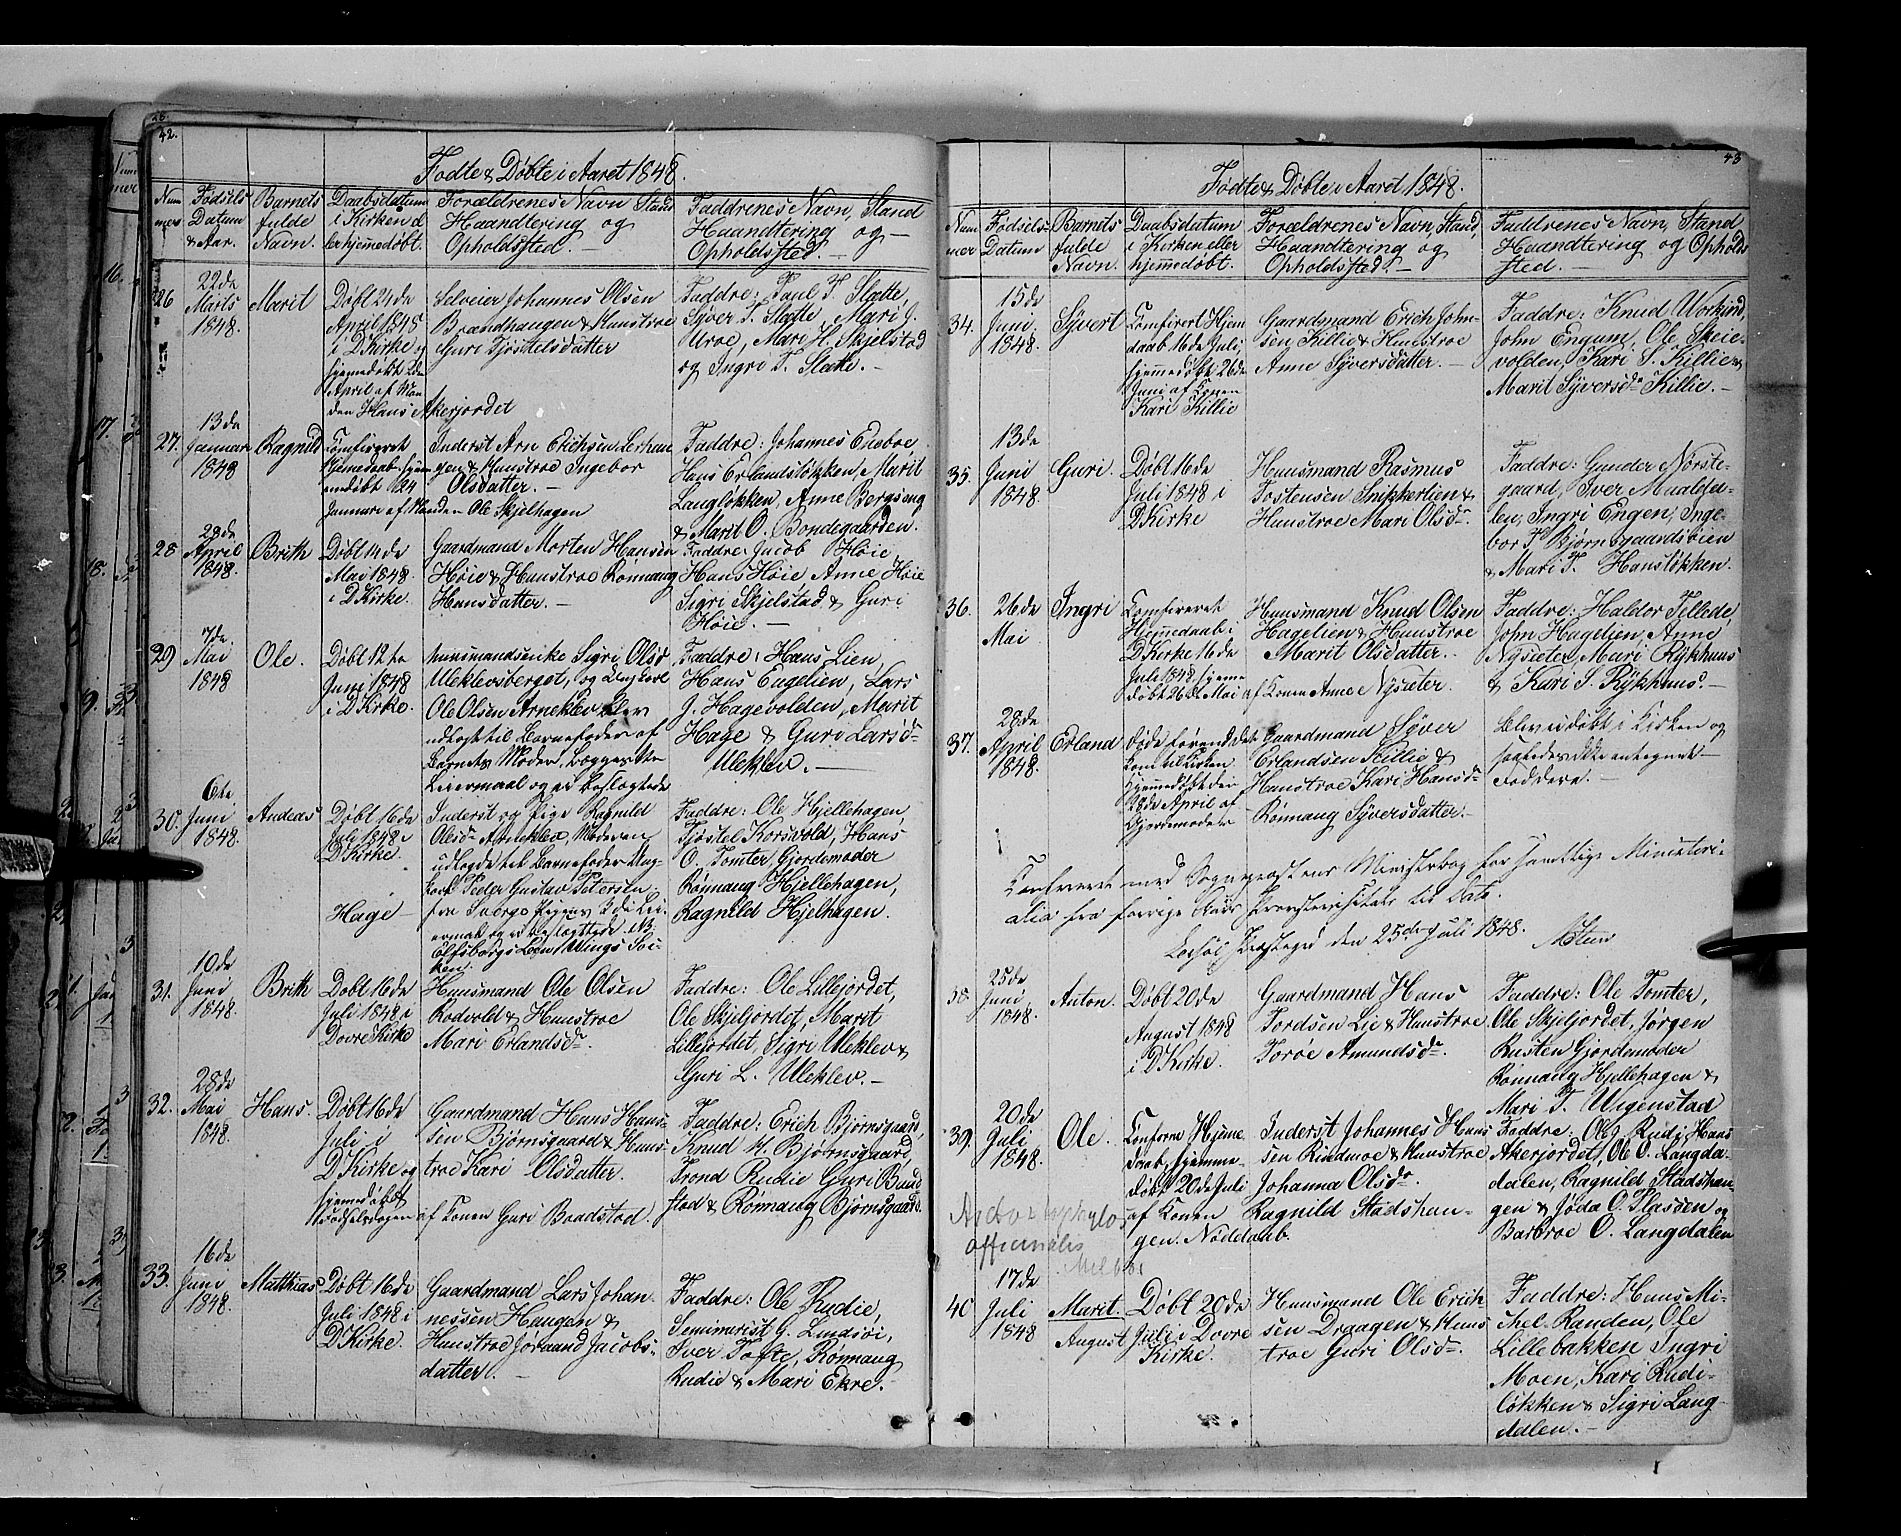 42.
Fødte & Døbte i Aaret 1848.
Num mer
Fødsels Datum & Aar.
Barnets fulde Navn.
Daabsdatum i Kirken el er hjemmedøbt.
Forældrenes Navn Stand Haandtering og Opholdssted. —
Faddrenes Navn, Stand Haandtering og — Opholdssted. —
26
22de Marts 1848.
Marit
Døbt 24de
April 1848
i D Kirke og
hjemedøbt 2de
April af Man
den Hans Akerjordet
Selveier Johannes Olsen
Brændhaugen & Hustroe
Guri Tjøstelsdatter
Faddre: Paul T. Slette,
Syver T. Slette, Mari J.
Uroe, Mari H. Skjelstad
og Ingri T. Slette. —
27.
13de Januar 1848
Ragnild
Comfirmeret
Hjemedaab hjem
emdøbt 24
Januar af Manden Ole Skjelhagen
Inderst Arn Erichsen Lerhau
gen & Hustroe Ingebor
Olsdatter. —
Faddre: Johannes Eneboe,
Hans Erlandsløkken, Marit
Langløkken, Anne Bergseng
& Marit O. Bondegaarden.
28
28de April 1848.
Brith
Døbt 14de
Mai 1848.
i D Kirke.
Gaardmand Morten Hansen
Høie & Hustroe Rønnaug
Hansdatter. —
Faddre: Jacob Høie,
Hans Høie Anne Høie
Sigri Skjelstad & Guri
Høie. —
29
7de Mai 1848
Ole.
Døbt 12te
Juni 1848
i D Kirke.
Sigri Olsd
Uleklevsberget, og Ungkarl
Ole Olsen Arneklev blev
udlagt til Barnefader af
Barnets Moder, Begges 1ste
Leiermaal og ei beslægtede
Faddre: Hans Lien,
Hans Engelien, Lars
J. Hagevolden, Marit
Hage & Guri Larsdr
Uleklev. —
30.
6te Juni 1848.
Andeas
Døbt 16de
Juli 1848 i
D Kirke.
Hage —
Inderst og Pige Ragnild
Olsdr Arneklev, Moderen
udlagde til Barnefader Ung
karl Peder Gustav Petersen
fra Sverge Pigens 3die Lei
ermaal og ei beslægtede. i N.
Elfsborgs Leen, Wings Soc
ken.
Faddre: Ole Hjellehagen,
Tjøstel Korsvold, Hans
O. Tomter, Gjordemoder
Rønnaug Hjellehagen,
Ragnild Hjelhagen.
31.
10de Juni 1848.
Brith
Døbt 16de
Juli 1848 i
Dovre Kirke
Huusmand Ole Olsen
Rodvold & Hustroe
Mari Erlandsdr.
Faddre: Ole Lillejordet,
Ole Skjeljordet, Marit
Lillejordet, Sigri Uleklev &
Guri L. Uleklev. —
32.
28de Mai 1848.
Hans
Døbt 16de
Juli i
D Kirke og
hjemedøbt
Fødselsdagen af Konen Guri Baadstad.
Gaardmand Hans Hans=
sen Bjørnsgaard & Hus=
troe Kari Olsdatter.
Faddre: Erich Bjørnsgaard,
Knud H. Bjørnsgaard,
Trond Rudie Guri Baad
stad & Rønnaug Bjørnsgaard.
33.
16de Juni 1848.
Matthias
Døbt 16de
Juli 1848 i
D Kirke.
Gaardmand Lars Johan
nessen Haugen &
Hustroe Jøraand Jacobs=
datter. —
Faddre: Ole Rudie,
Seminarist G. Lindsøi,
Iver Tofte, Rønnaug
Rudie & Mari Ekre. —
43
Fødte & Døbte i Aaret 1848.
Num mer
Fødsels Datum
Barnets fulde Navn.
Daabsdatum i Kirken eller hjemmedøbt.
Forældrenes Navn, Stand, Haandtering og Opholdssted. —
Faddrenes Navn, Stand Haandtering og Opholds sted. —
34.
15de Juni 1848.
Syvert
Comfirert Hjem
daab 16de Juli,
hjemmedøbt 26de
Juni af Konen
Kari Killie
Gaardmand Erich John=
sen Killie & Hustroe
Anne Syversdatter. —
Faddre: Knud Workind,
John Engum, Ole Skeie=
volden, Kari S. Killie &
Marit Syversdr Killie. —
35.
13de Juni 1848
Guri.
Døbt 16de
Juli 1848 i
D Kirke
Huusmand Rasmus
Tostensen Snipkertlien &
Hustroe Mari Olsdr
Faddre: Gunder Nørste=
gaard, Iver
len, Ingri Engen, Inge=
bor T. Bjørnsgaardslien
& Mari T. Hansløkken.
36.
26de Mai
Ingri
Comfireret
Hjemmedaab i
D Kirke 16de
Juli 1848, hjemme
døbt 26de Mai af Konen Anne Nysæter.
Huusmand Knud Olsen
Hagelien & Hustroe
Marit Olsdatter. —
Faddre: Haldor Tillede,
John Hagelien, Anne
Nysæter, Mari Rykhuus
& Kari S. Rykhuus. —
37.
28de April 1848.
Erland
Døde førend det
kom til Kirken
Hjemmedøbt den
28de April af
Gjordemoder
Gaardmand Syver
Erlandsen Killie &
Hustroe Kari Hansdr
Rønnaug Syversdatter. —
blev ei døbt i Kirken og
saaledes ikke antegnet
Faddere. —
Confereret med Sognepræstens Ministerbog for samtlige Ministeri=
alia fra forrige Aars Provstevisitats til Dato.
Lessø Præstegd den 25de Juli 1848.
38.
25de Juni 1848.
Anton.
Døbt 20de
August 1848
i D Kirke.
Gaardmand Hans
Tordsen Lie & Hustroe
Torøe Amundsdr.
Faddre: Ole Tomter,
Ole Skjeljordet, Jørgen
Rusten Gjordemoder
Rønnaug Hjellehagen &
Mari T. Wigenstad
39.
20de Juli 1848.
Ole.
Confirm Hjeme
daab, hjemme=
døbt 20de Juli
af Konen Ragnild Stadshau=
gen. Nøddaab.
Inderst Johannes Hans
sen Rindmoe & Hustroe
Johanna Olsdr
Faddre: Ole Rudi Hans
Akerjordet, Ole O. Langda=
dalen, Ragnild Stadshau=
gen & Jøda O. Slasden og
Barbroe O. Langdalen
officinalis
40
17de Juli 1848
Marit.
August
Døbt 20de
Juli i Dovre
Kirke.
Huusmand Ole Erich
sen Draagen & Hus
troe Guri Olsdr.
Faddre: Hans Mi=
chel Randen, Ole
Lillebakken Ingri
Moen, Kari Rudi=
løkken & Sigri Lang=
dalen. —